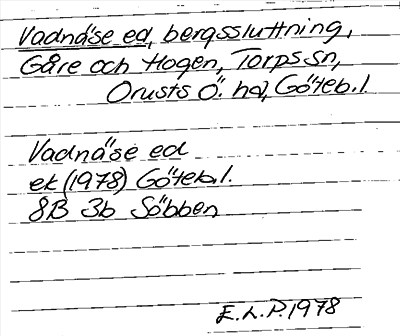 Vadnäse ed, bergssluttning,
Gåre och Hogen, Torps sn,
Orusts Ö. hd, Göteb. l.
Vadnäse ed
ek (1978) Göteb. l.
8B 3b Söbben
E.L.P. 1978